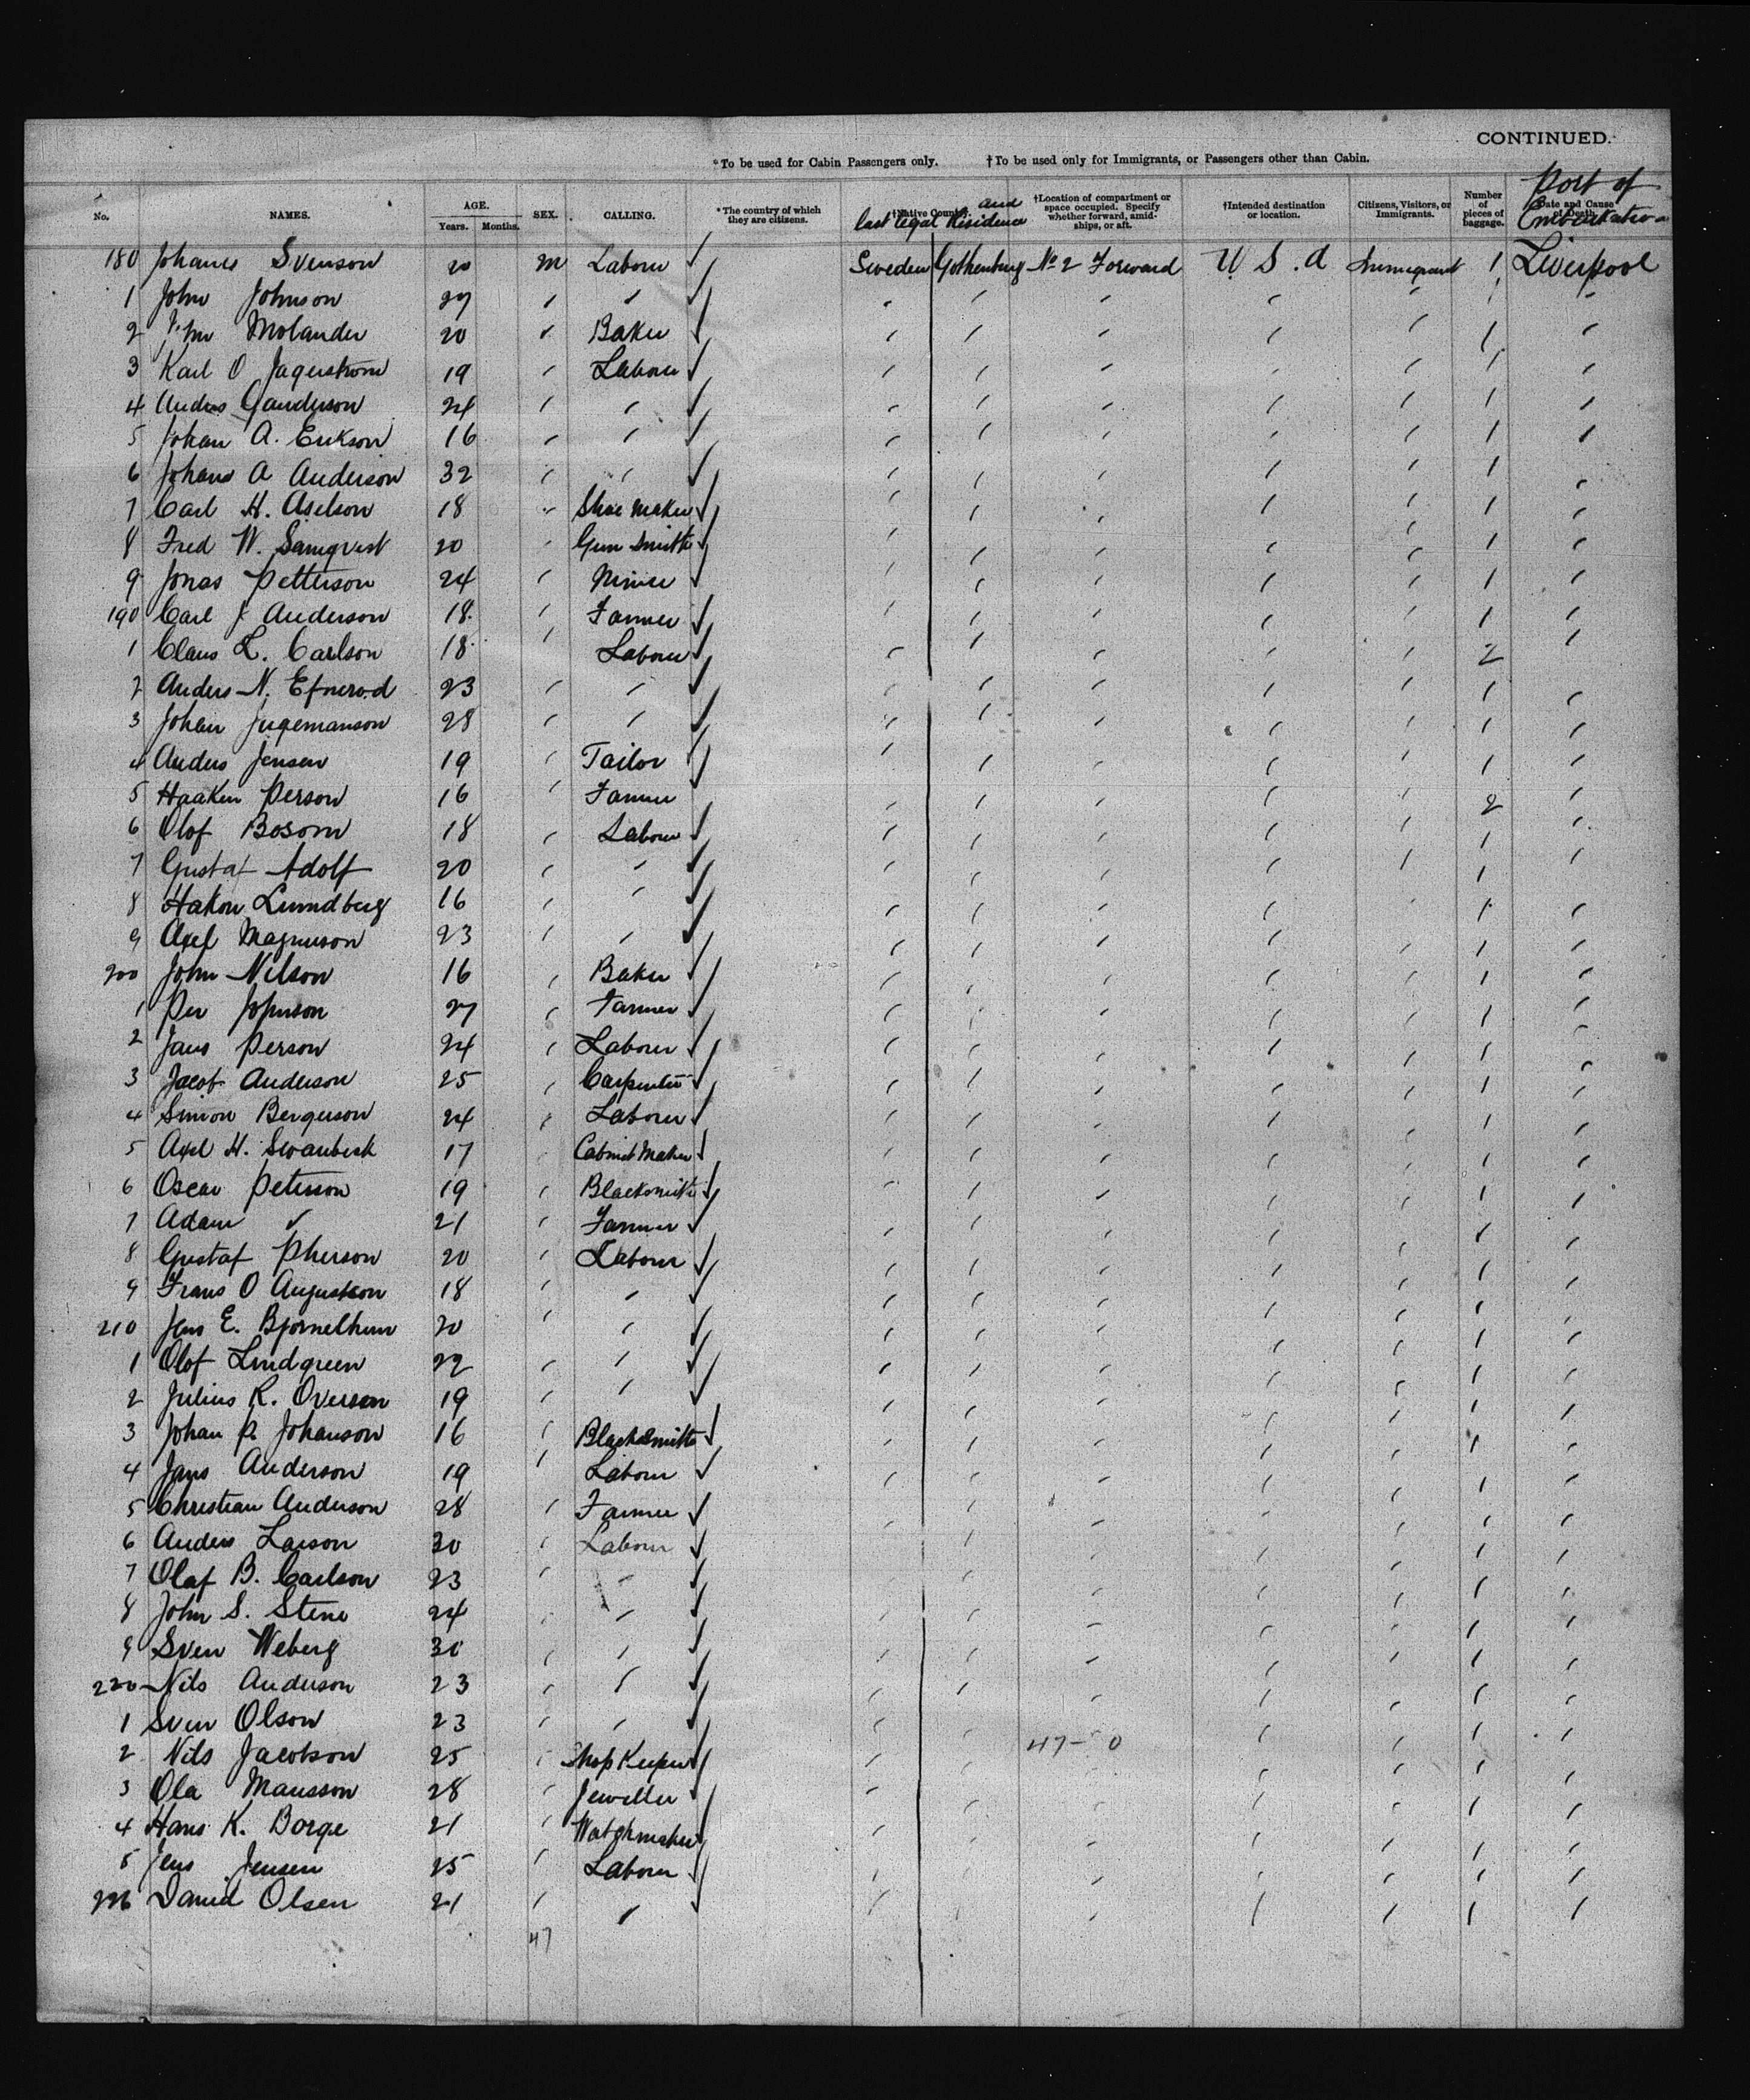 CONTINUED.
*To be used for Cabin Passengers only. †To be used only for Immigrants, or Passengers other than Cabin.
No. NAMES. AGE. Years. Months. SEX. CALLING. *The country of which they are citizens. †Native Country and last legal Residence †Location of compartment or space occupied. Specify whether forward, amidships, or aft. †Intended destination or location. Citizens, Visitors, or Immigrants. Number of pieces of baggage. Date and Cause of Death. Port of Embarkation
180 Johanes Svenson 20 M Labour Sweden Gothenburg No 2 Forward U.S.A Immigrant 1 Liverpool
1 John Johnson 27 " "
2 Molander 20 " Baker 1
3 Karl O Jagerstrom 19 " Labour 1
4 Anders Ganderson 24 " " 1
5 Johan A. Erikson 16 " " 1
6 Johans A Anderson 32 " " 1
7 Carl H. Axelson 18 " Shoe Maker 1
8 Fred W. Samqvist 20 " Gun Smith 1
9 Jonas Petterson 24 " Miner 1
190 Carl J Anderson 18 " Farmer 1
1 Claus L. Carlson 18 " Labour 2
2 Anders N. 23 " " 1
3 Johan Jugemanson 28 " " 1
4 Anders Jensen 19 " Tailor 1
5 Haaken Person 16 " Farmer 2
6 Olof Bosom 18 " Labour 1
7 Gustaf Adolf 20 " " 1
8 Hakon Lundberg 16 " " 1
9 Axel Magnuson 23 " " 1
200 John Nilson 16 " Baker 1
1 Per Johnson 27 " Farmer 1
2 Jans Person 24 " Labour 1
3 Jacob Anderson 25 " Carpenter 1
4 Simon Bergerson 24 " Labour 1
5 Axel H. Swanbeck 17 " Cabinet Maker 1
6 Oscar Peterson 19 " Blacksmith 1
7 Adam " 21 " Farmer 1
8 Gustaf Pherson 20 " Labour 1
9 Frans O Augustson 18 " " 1
210 Jens E. Bjornelhum 20 " " 1
1 Olof Lindgreen 22 " " 1
2 Julius K. Overson 19 " " 1
3 Johan P. Johanson 16 " Blacksmith 1
4 Jans Anderson 19 " Labour 1
5 Christian Anderson 28 " Farmer 1
6 Anders Larson 30 " Labour 1
7 Olaf B. Carlson 23 " " 1
8 John S. Stene 24 " " 1
9 Sven Weberg 30 " " 1
220 Nils Anderson 23 " " 1
1 Sven Olson 23 " " 1
2 Nils Jacobson 25 " Shop Keeper 47-0 1
3 Ola Mansson 28 " Jeweller 1
4 Hans K. Borge 21 " Watchmaker 1
5 Jens Jensen 25 " Labour 1
226 David Olsen 21 " " 1
47